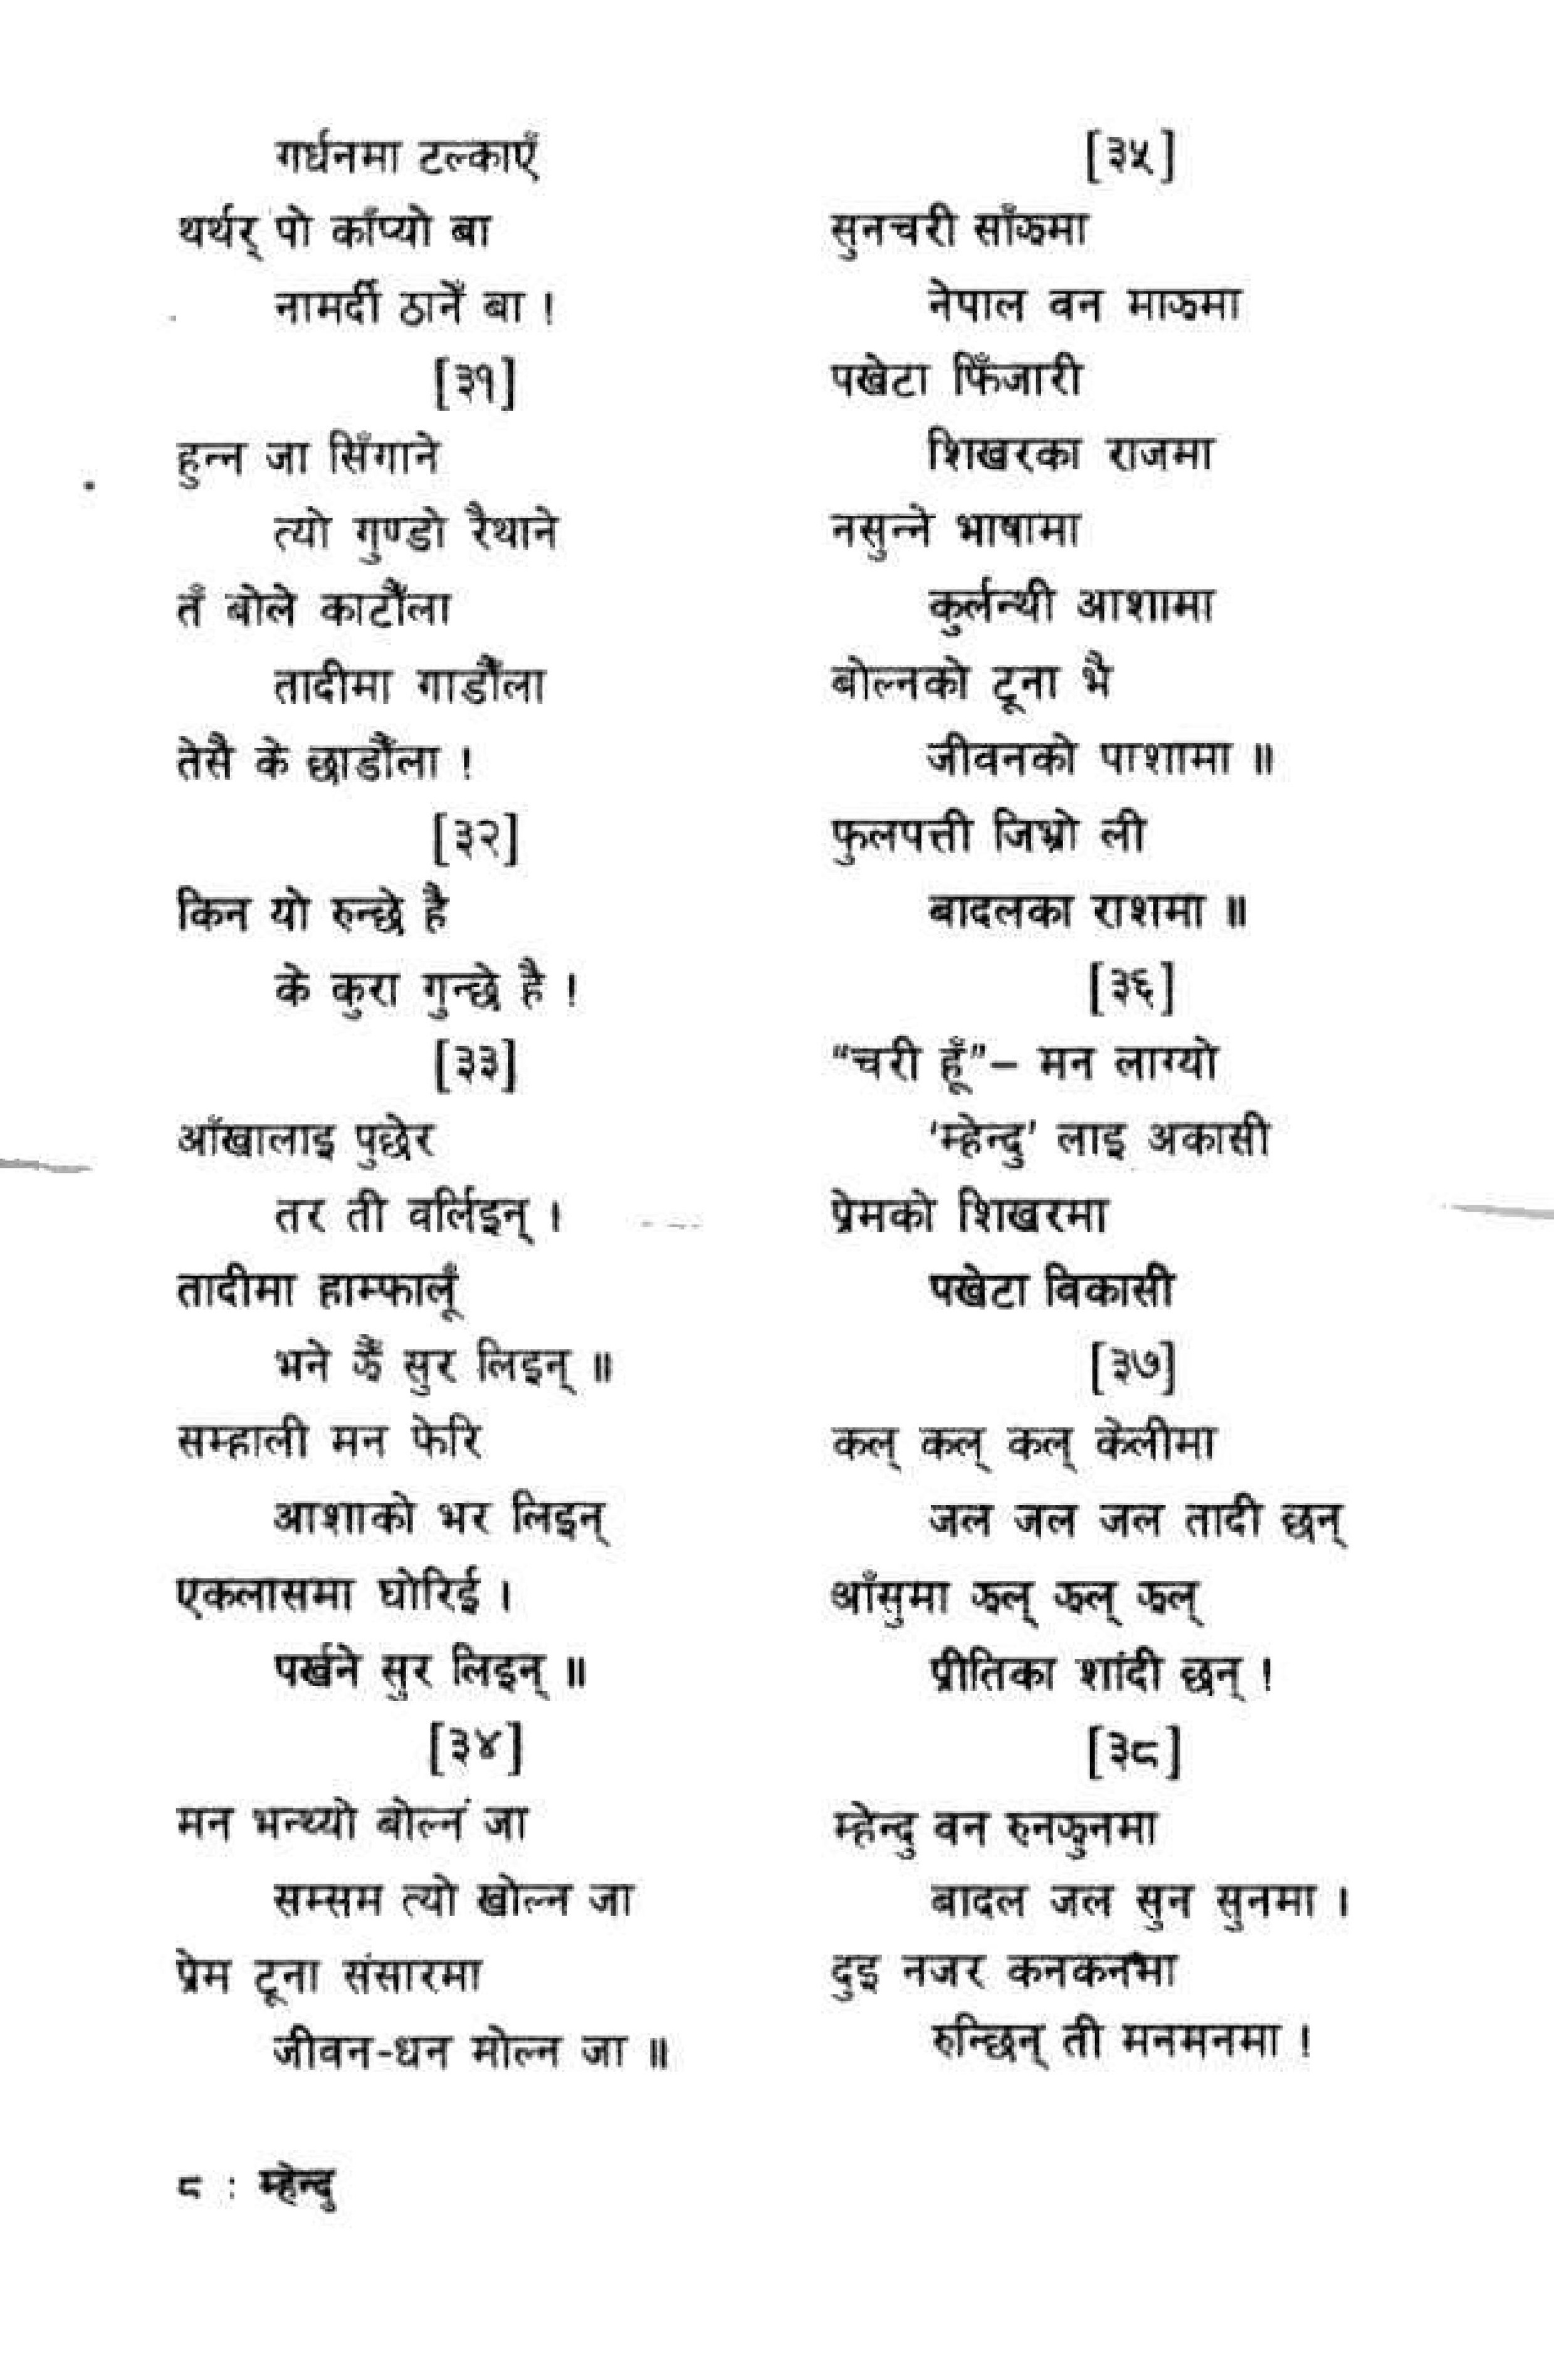 गर्धनमा टल्काएँ
थर्थर् पो काँप्यो बा
नामर्दी ठानेँ बा !
[३१]
हुन्न जा सिँगाने
त्यो गुण्डो रैथाने
तँ बोले काटौंला
तादीमा गाडौंला
तेसै के छाडौंला !
[३२]
किन यो रुन्छे है
के कुरा गुन्छे है !
[३३]
आँखालाइ पुछेर
तर ती वर्लिइन् ।
तादीमा हाम्फालूँ
भने झैं सुर लिइन् ॥
सम्हाली मन फेरि
आशाको भर लिइन्
एकलासमा घोरिई ।
पर्खने सुर लिइन् ॥
[३४]
मन भन्थ्यो बोल्नं जा
सम्सम त्यो खोल्न जा
प्रेम टूना संसारमा
जीवन-धन मोल्न जा ॥
८ : म्हेन्दु
[३५]
सुनचरी साँझमा
नेपाल वन माझमा
पखेटा फिँजारी
शिखरका राजमा
नसुन्ने भाषामा
कुर्लन्थी आशामा
बोल्नको टूना भै
जीवनको पाशामा ॥
फुलपत्ती जिभ्रो ली
बादलका राशमा ॥
[३६]
“चरी हूँ”– मन लाग्यो
'म्हेन्दु' लाइ अकासी
प्रेमको शिखरमा
पखेटा विकासी
[३७]
कल् कल् कल् केलीमा
जल जल जल तादी छन्
आँसुमा झल् झल् झल्
प्रीतिका शांदी छन् !
[३८]
म्हेन्दु वन रुनझुनमा
बादल जल सुन सुनमा ।
दुइ नजर कनकनमा
रुन्छिन् ती मनमनमा !